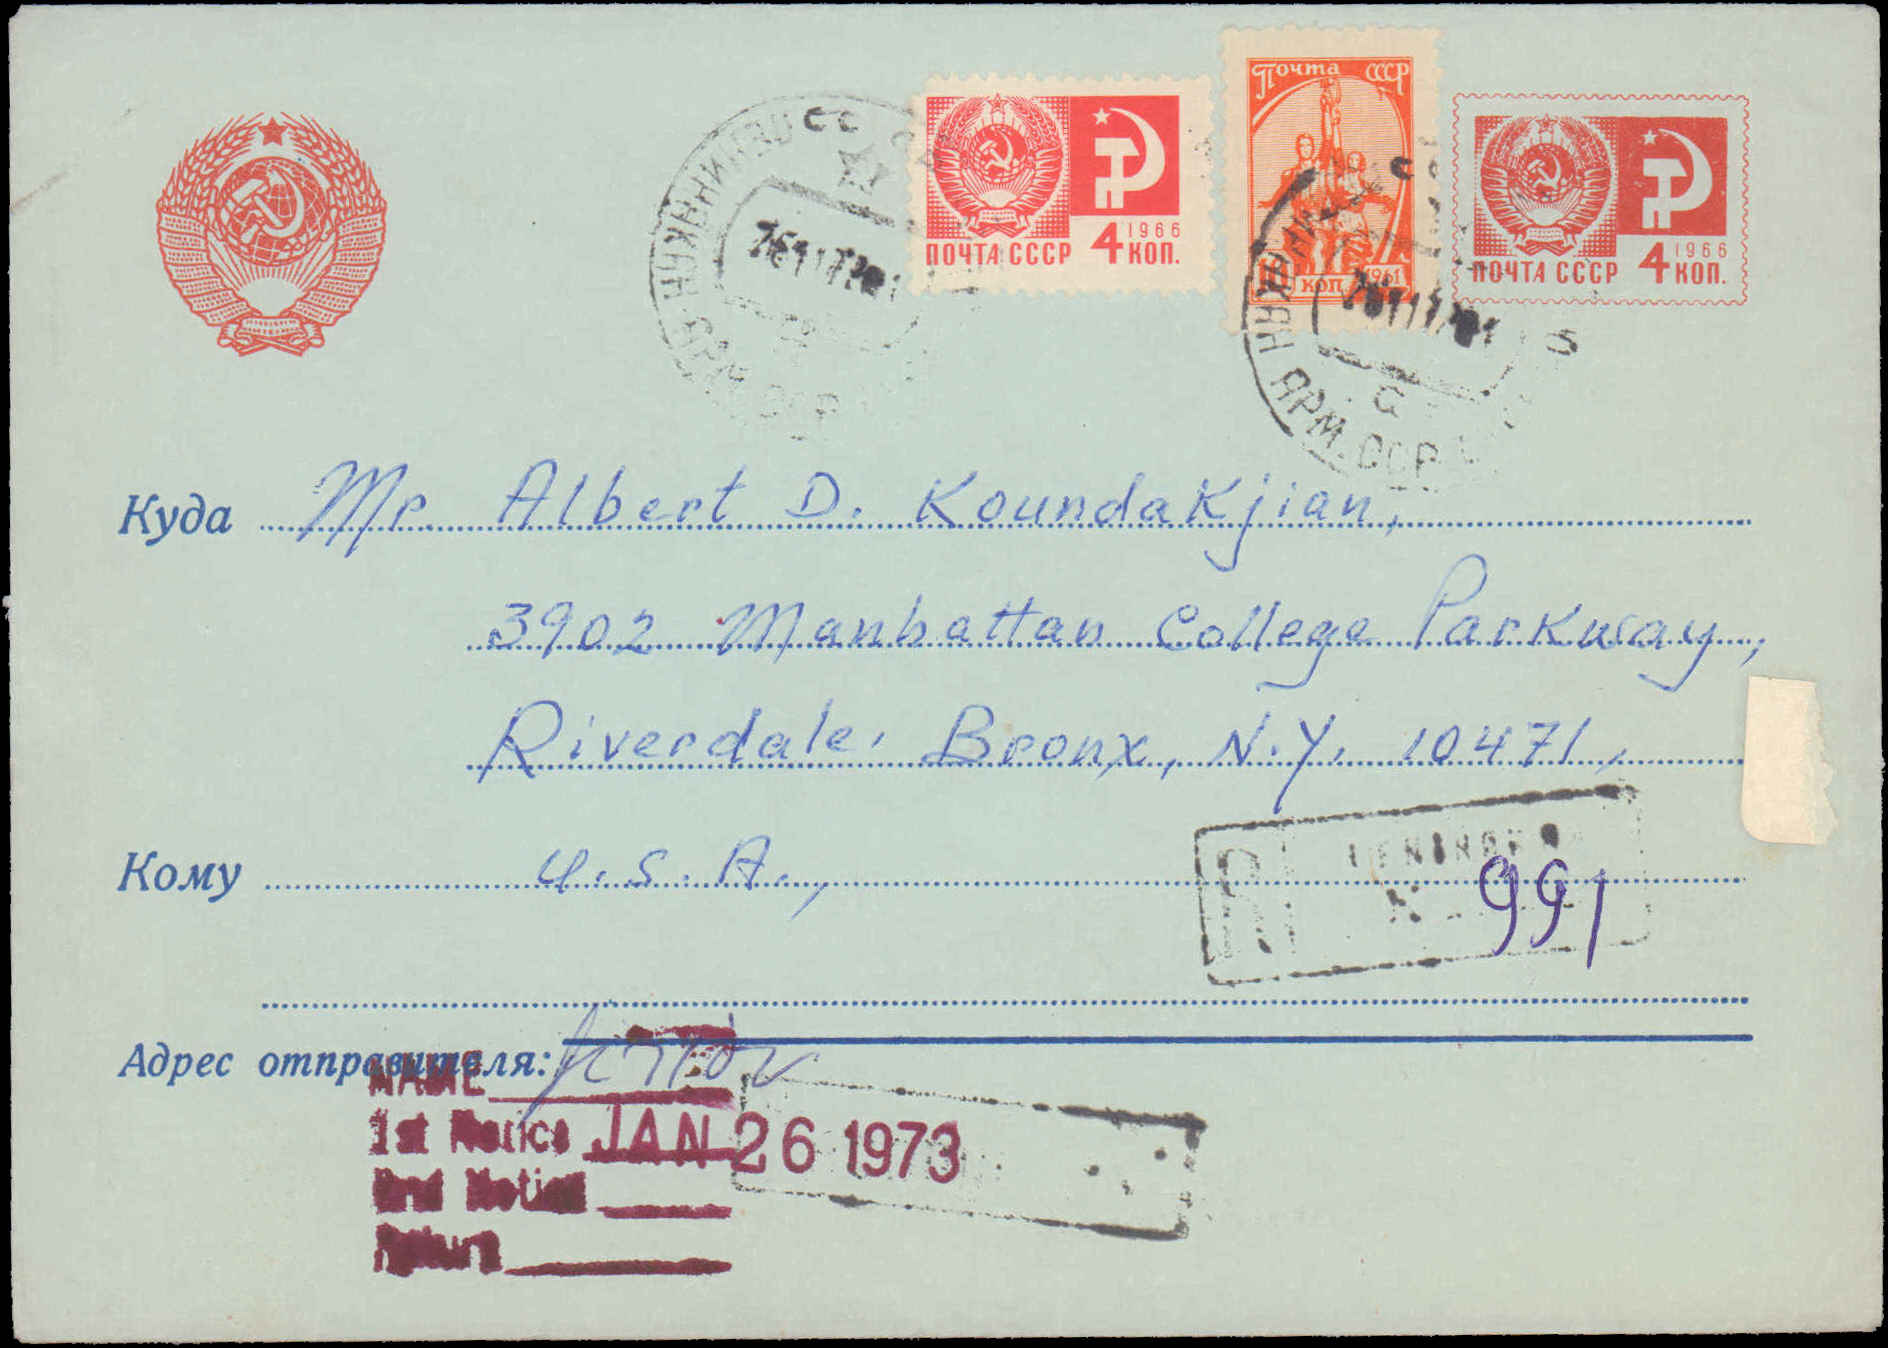 ПОЧТА СССР 4 КОП. 1966
Почта СССР
КОП. 1961
ПОЧТА СССР 4 КОП. 1966
ЛЕНИНАКАН
АРМ. ССР
Куда Mr. Albert D. Koundakjian,
3902 Manhattan College Parkway,
Riverdale, Bronx, N.Y. 10471,
Кому U.S.A.,
R
991
Адрес отправителя:
NAME
1st Notice JAN 26 1973
2nd Notice
Return